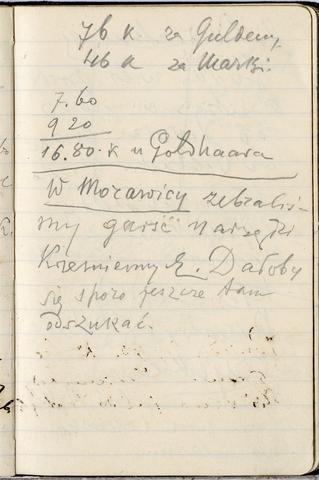 76 K za Guldeny
46 K za Marki:
7.60
9 20
16.80. K u Goldhaara
W Morawicy zebraliś-
my garść narzędzi
Krzemienny
Dałoby
się sporo jeszcze tam
odszukać.